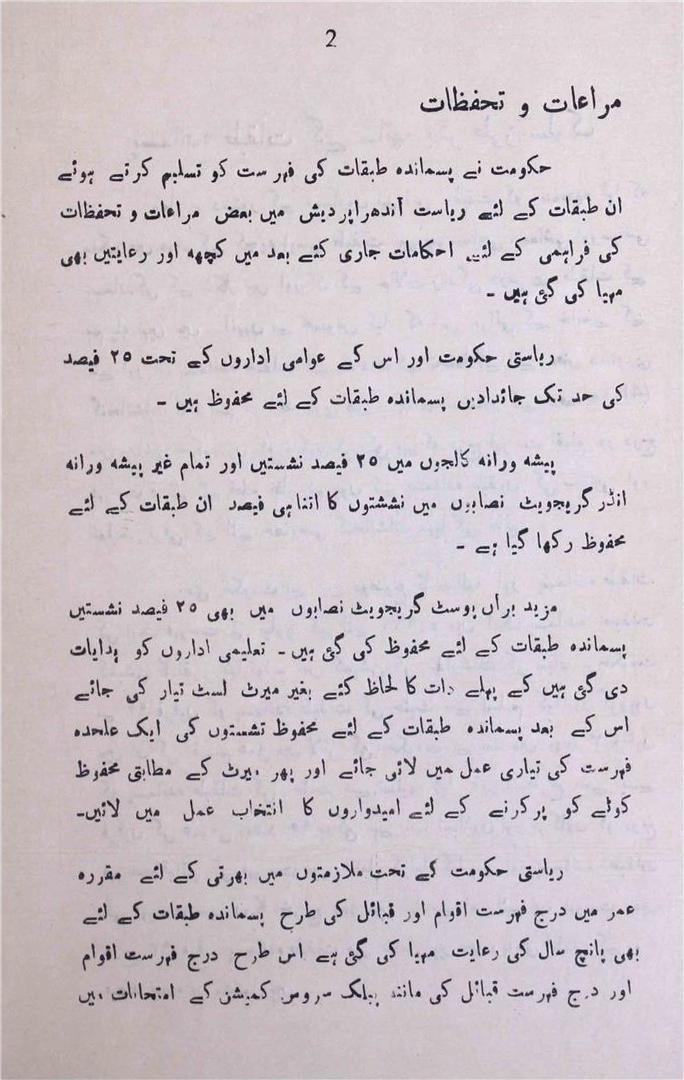 2
مراعات و تحفظات
حکومت نے پسماندہ طبقات کی فہرست کو تسلیم کرتے ہوئے
ان طبقات کے لئے ریاست آندھراپردیش میں بعض مراعات و تحفظات
کی فراہمی کے لئے احکامات جاری کئے بعد میں کچھہ اور رعایتیں بھی
مہیا کی گئی ہیں ـ
ریاستی حکومت اور اس کے عوامی اداروں کے تحت ۲۵ فیصد
کی حد تک جائدادیں پسماندہ طبقات کے لئے محفوظ ہیں ـ
پیشہ ورانہ کالجوں میں ۲۵ فیصد نشستیں اور تمام غیر پیشہ ورانہ
انڈر گریجویٹ نصابوں میں نششتوں کا اتنا ہی فیصد ان طبقات کے لئے
محفوظ رکھا گیا ہے ـ
مزید براں پوسٹ گریجویٹ نصابوں میں بھی ۲۵ فیصد نشستیں
پسماندہ طبقات کے لئے محفوظ کی گئی ہیں ـ تعلیمی اداروں کو ہدایات
دی گئی ہیں کے پہلے ذات کا لحاظ کئے بغیر میرٹ لسٹ تیار کی جائے
اس کے بعد پسماندہ طبقات کے لئے محفوظ نشستوں کی ایک علحدہ
فہرست کی تیاری عمل میں لائی جائے اور پھر میرٹ کے مطابق محفوظ
کوٹے کو پرکرنے کے لئے امیدواروں کا انتخاب عمل میں لائیں۔
ریاستی حکومت کے تحت ملازمتوں میں بھرتی کے لئے مقررہ
عمر میں درج فہرست اقوام اور قبائل کی طرح پسماندہ طبقات کے لئے
بھی پانچ سال کی رعایت مہیا کی گئی ہے اس طرح درج فہرست اقوام
اور درج فہرست قبائل کی مانند پبلک سروس کمیشن کے امتحانات میں